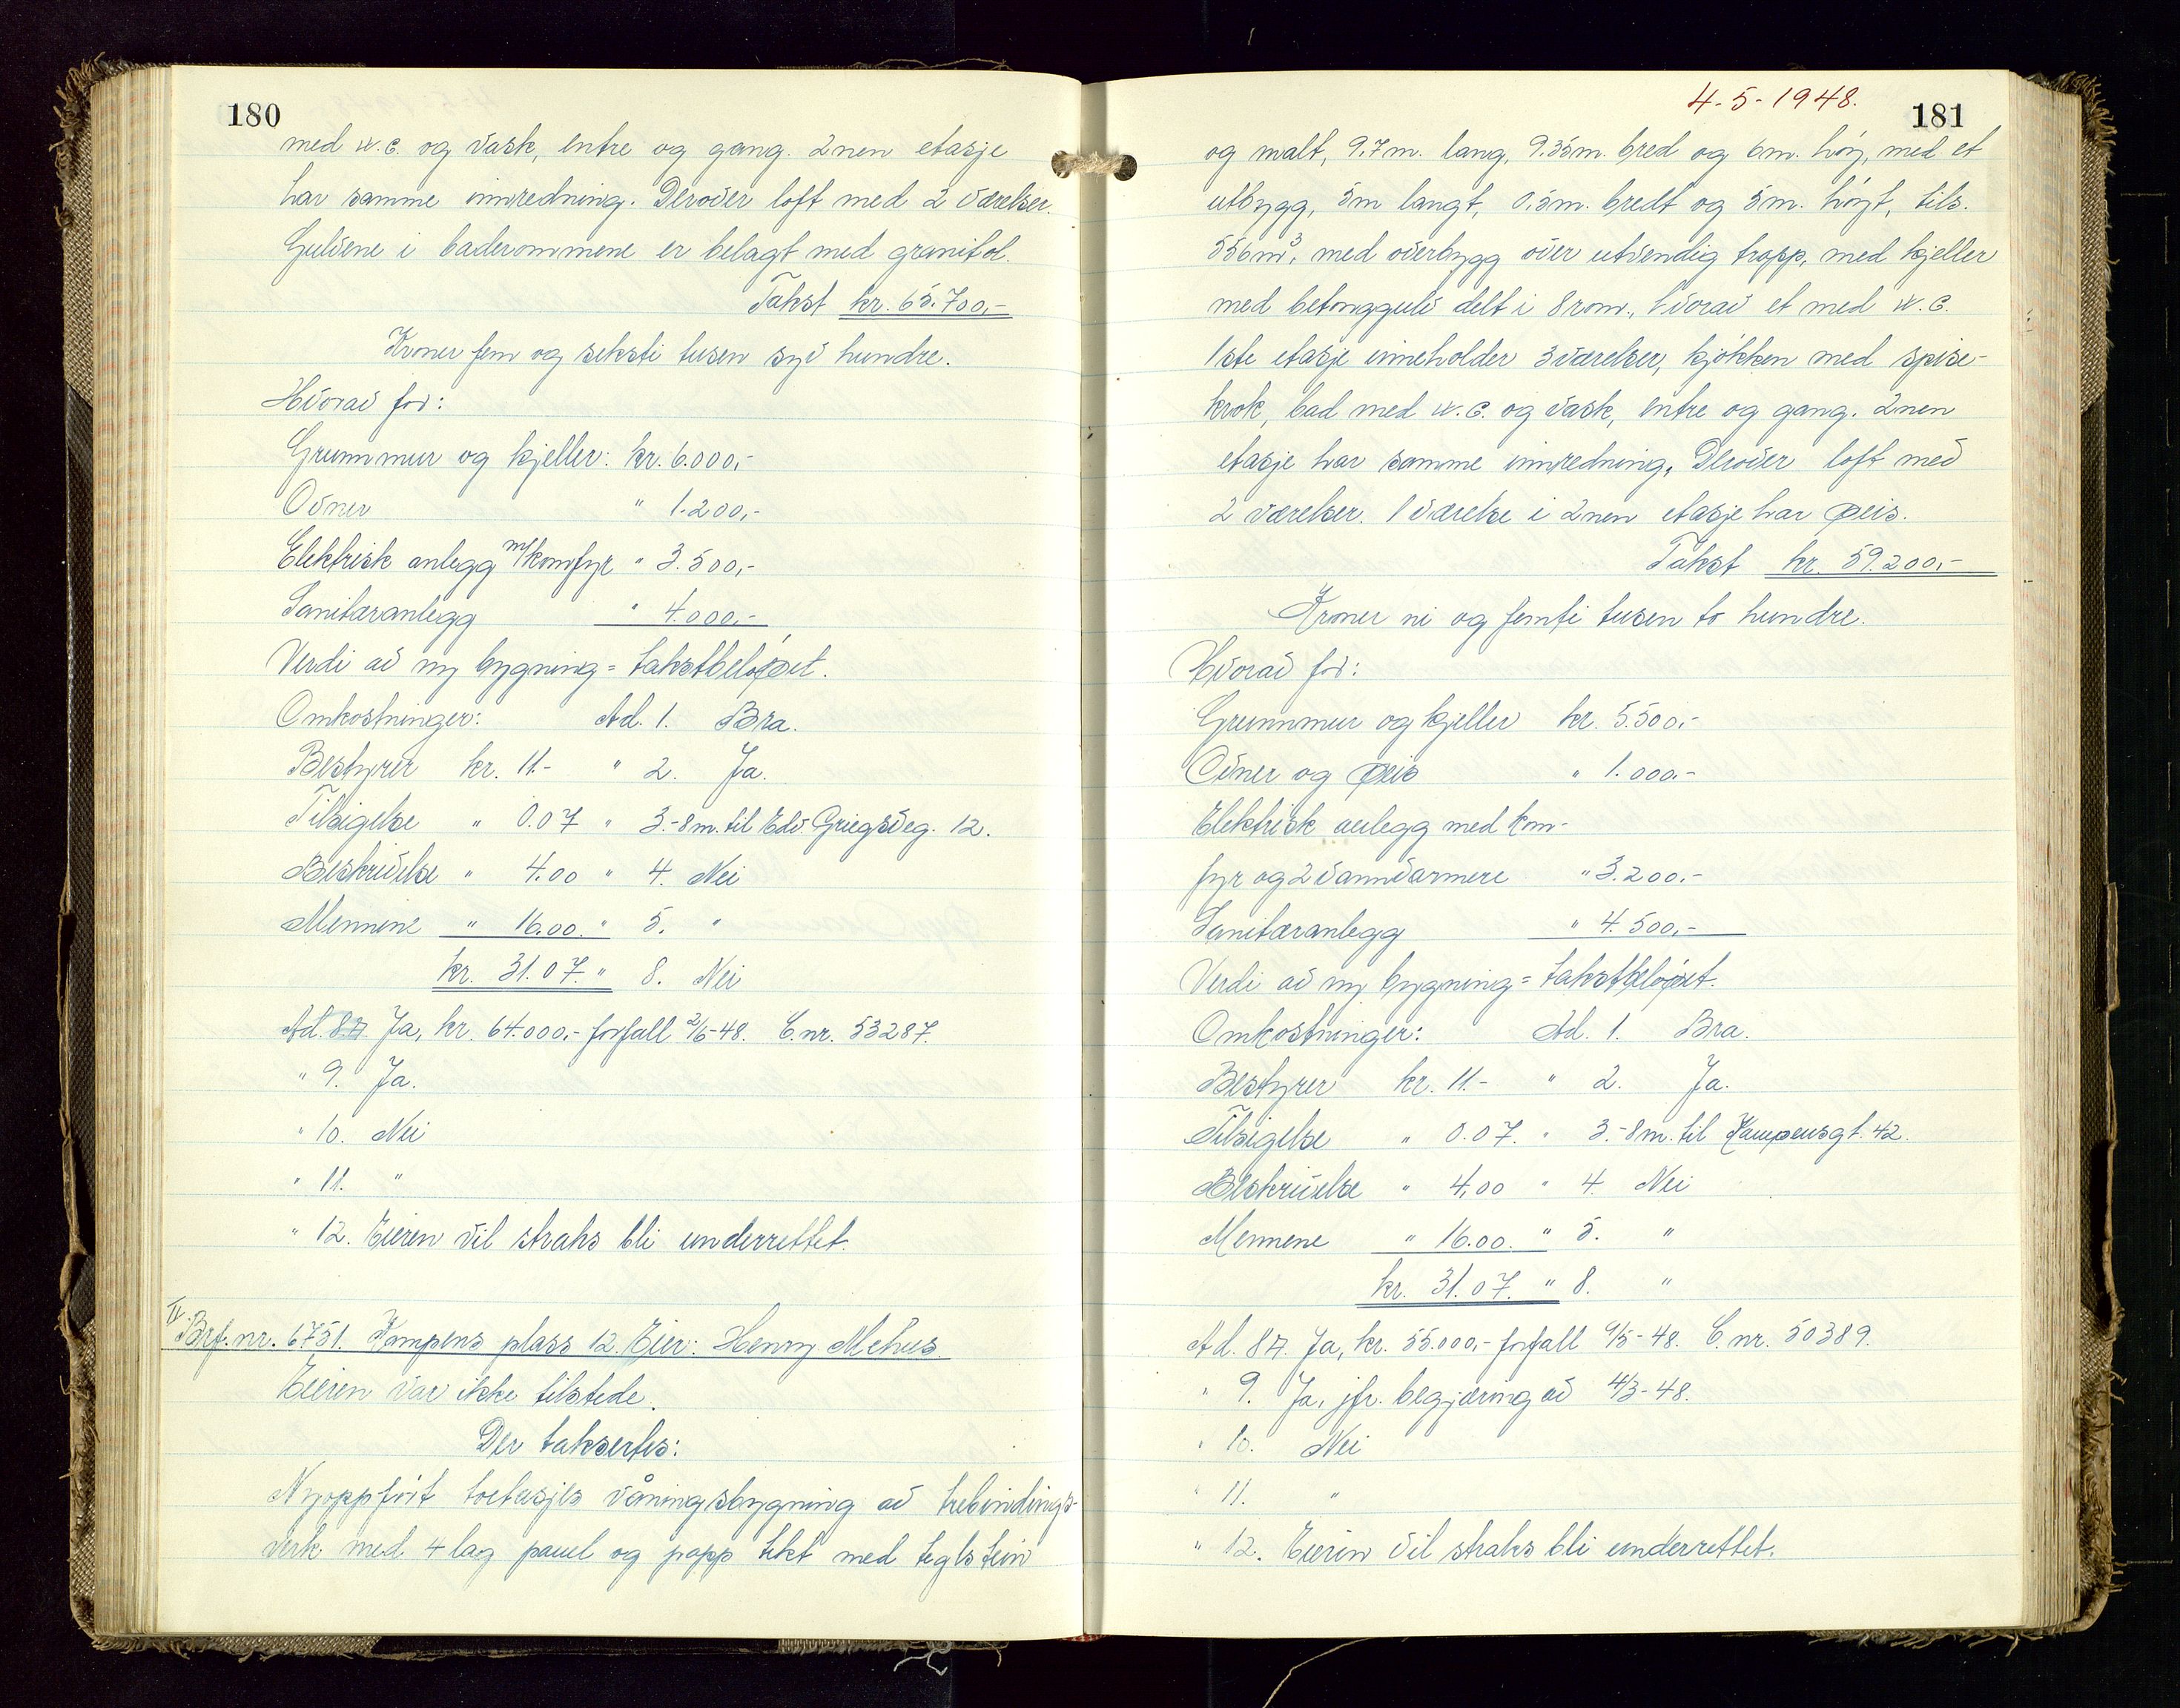 180
med w.c. og vask, entre og gang. 2nen etasje
har samme innredning. Derover loft med 2 værelser.
Gulvene i baderommene er belagt med granitol.
Takst kr. 65.700,-
Kroner fem og seksti tusen syv hundre.
Hvorav for:
Grunnmur og kjeller: kr. 6.000,-
Ovner " 1.200,-
Elektrisk anlegg m/komfyr " 3.500,-
Sanitæranlegg " 4.000,-
Verdi av ny bygning = takstbeløpet.
Omkostninger: Ad. 1. Bra.
Bestyrer kr. 11.- " 2. Ja.
Tilsigelse " 0.07 " 3.-8m. til Edv. Griegsveg. 12.
Beskrivelse " 4.00 " 4. Nei
Mennene " 16.00. " 5. "
kr. 31.07. " 8. Nei
Ad. 8 Ja, kr. 64.000,- forfall 2/6-48. C.nr. 53287.
" 9. Ja.
" 10. Nei
" 11. "
" 12. Eieren vil straks bli underrettet.
II. Brf. nr. 6751. Kampens plass 12. Eier: Henry Mehus.
Eieren var ikke tilstede.
Der taksertes:
Nyoppført toetasjes våningsbygning av trebindings-
verk med 4 lag panel og papp tekt med teglstein
4-5-1948.
181
og malt, 9.7m. lang, 9.35m. bred og 6m. høy, med et
utbygg, 5m langt, 0.5m. bredt og 5m. høyt, tils.
556m³, med overbygg over utvendig trapp, med kjeller
med betonggulv delt i 8 rom., hvorav et med w.c.
1ste etasje inneholder 3 værelser, kjøkken med spise-
krok, bad med w.c. og vask, entre og gang. 2nen
etasje har samme innredning. Derover loft med
2 værelser. 1 værelse i 2nen etasje har peis.
Takst kr. 59.200,-
Kroner ni og femti tusen to hundre.
Hvorav for:
Grunnmur og kjeller kr. 5.500,-
Ovner og peis " 1.000.-
Elektrisk anlegg med kom-
fyr og 2 vannvarmere " 3.200.-
Sanitæranlegg " 4.500,-
Verdi av ny bygning = takstbeløpet.
Omkostninger: Ad. 1. Bra.
Bestyrer kr. 11.- " 2. Ja.
Tilsigelse " 0.07. " 3.-8m. til Kampensgt. 42.
Beskrivelse " 4,00 " 4. Nei
Mennene " 16.00. " 5. "
kr. 31.07. " 8. "
Ad. 8 Ja, kr. 55.000,- forfall C.nr. 50389.
" 9. Ja, jfr. begjæring av 4/3-48.
" 10. Nei
" 11. "
" 12. Eieren vil straks bli underrettet.